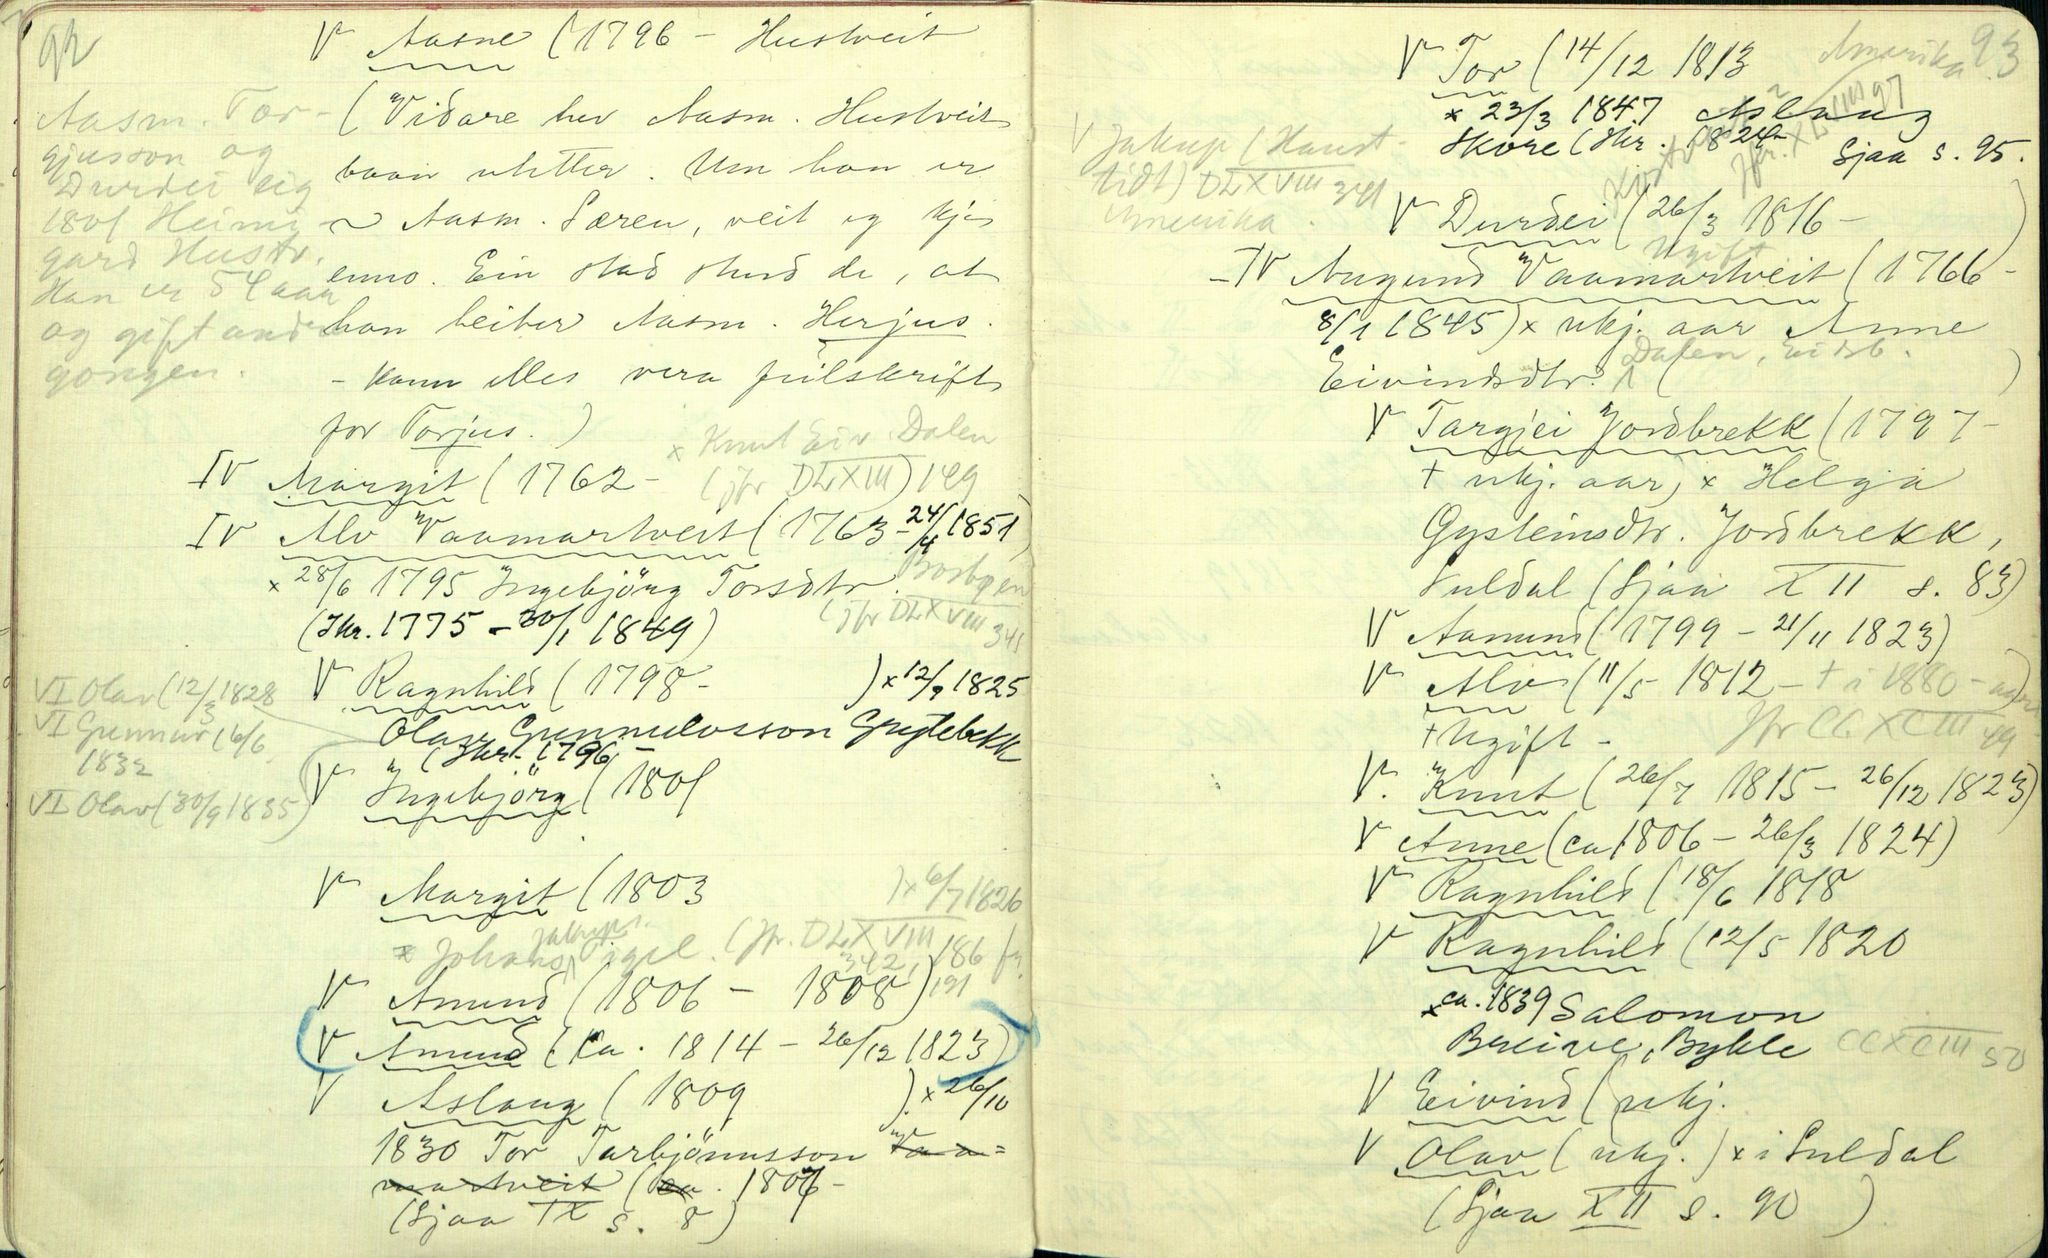 92
V Aasne (1796 - Hustveit
(Vidare hev Aasm. Hustveit
baan uketter. Um han er
~ Aasm. Særen, veit eg ikje
enno. Ein stad stend de, at
han heiter Aasm. Herjus.
- kann elles vera feilskrift
for Torjus.)
Aasm. Tor-
gjusson og
Durdei eig
1801 Heimi-
gard Hustv.
Han er 54 aar
og gift andre
gongen.
IV Margit (1762 -
x Knut Eiv. Dalen
(jfr DLXIII) 149
IV Alv Vaamartveit (1763 - 24/4 1851)
x 28/6 1795 Ingebjörg Torsdtr.
(Ikr. 1775 - 30/1 1849)
(jfr DLXVIII 341
V Ragnhild (1798 - ) x 12/9 1825
Olav Gunnulvsson
(Ikr. 1796 -
VI Olav (12/3 1828
VI Gunnar (6/6
1832
VI Olav (30/9 1835)
V Ingebjörg (1801
V Margit (1803 ) x 6/7 1826
x Johans Jakups.
(Jfr. DLXVIII
342, 186 fg.
191
V Amund (1806 - 1808)
V Amund (ca. 1814 - 26/12 1823)
V Aslaug (1809 ) x 26/10
1830 Tor Tarbjönnsson Vaa=
martveit (ca. 1807 -
(Sjaa IX s. 8)
93
V Tor (14/12 1813
Amerika
x 23/3 1847 Aslaug
Skore (Ikr. 1824 Sjaa s. 95.
V Jakup (Haust-
tidt) DLXVIII 341
Amerika.
V Durdei (26/3 1816 - )
Ugift
- IV Augund Vaamartveit (1766 -
8/1 1845) x ukj. aar Anne
Eivindsdtr. Dalen, Eidsb. ( )
V Targjei Jordbrekk (1797 -
+ ukj. aar) x Helga
Gysteinsdtr. Jordbrekk,
Suldal (Sjaa XII s. 83)
V Aamund (1799 - 21/11 1823)
V Alv (11/5 1812 - + i 1880-
+ Ugift - Jfr CCXCIII 49
V. Knut (26/7 1815 - 26/12 1823)
V Anne (ca 1806 - 26/3 1824)
V Ragnhild (18/6 1818
V Ragnhild (12/5 1820
x ca. 1839 Salomon
Breive, Bykle CCXCIII 50
V Eivind (ukj.
V Olav (ukj.) x i Suldal
(Sjaa XII s. 90 )